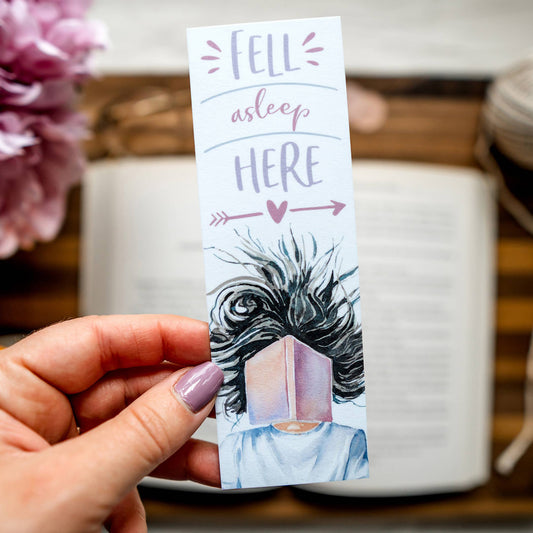 FELL
asleep
HERE